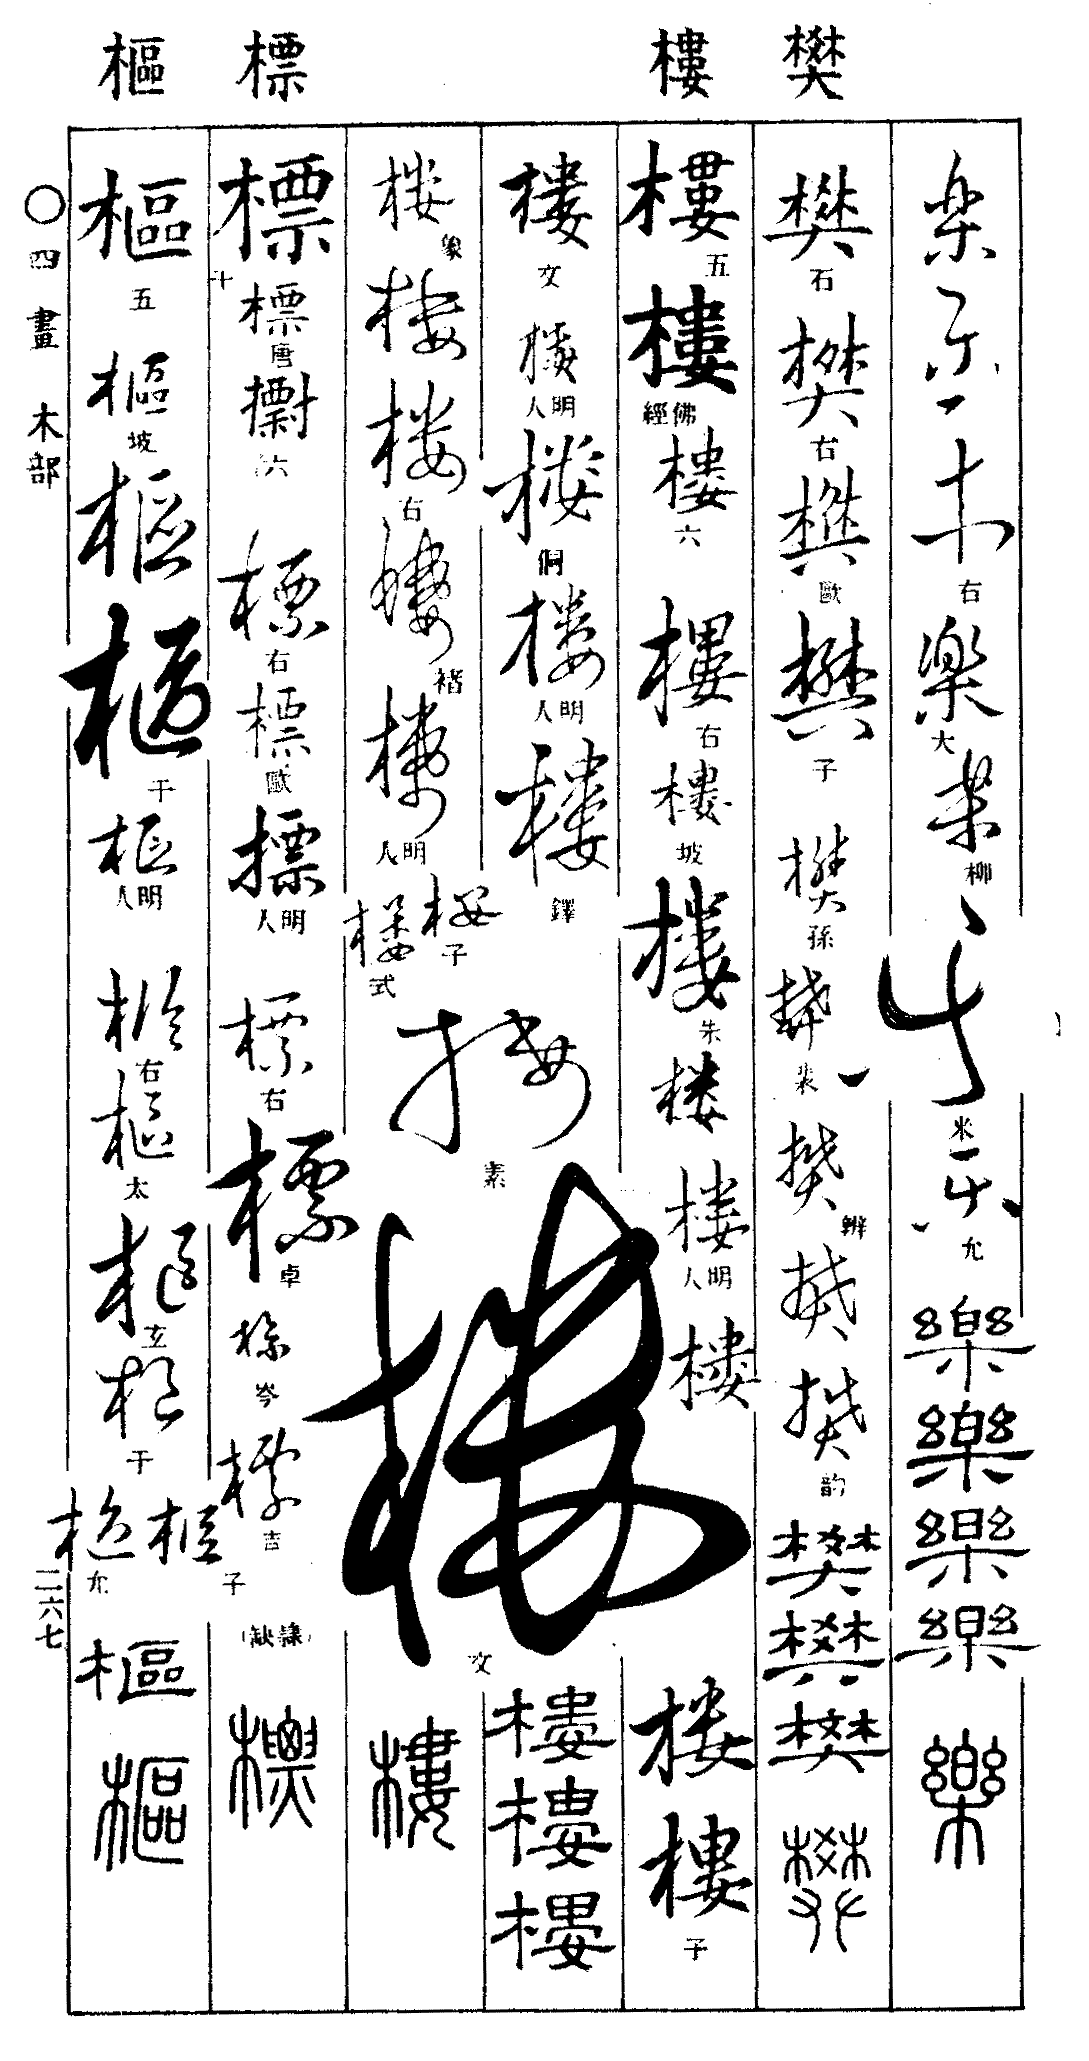 樊 樓 標 樞
楽 乐 右 楽 大 柳 米 允 樂 樂 樂 樂 樂
樊 石 樊 右 樊 歐 樊 子 樊 孫 樊 裴 樊 辨 樊 樊 韵 樊 樊 樊 樊
樓 五 樓 佛經 樓 六 樓 右 樓 坡 樓 朱 楼 樓 明人 樓 楼 樓 子
樓 文 樓 明人 楼 侗 楼 明人 楼 鐸 樓 樓 樓
楼 象 楼 楼 右 樓 褚 樓 明人 楼 子 楼 式 楼 素 楼 文 樓
標 十 標 唐 六 標 右 標 歐 標 明人 標 右 標 卓 標 岑 標 吉 (隸缺) 標
樞 五 樞 坡 樞 樞 干 樞 明人 樞 右 樞 太 樞 玄 樞 干 樞 子 樞 允 樞 樞
〇四畫 木部
二六七